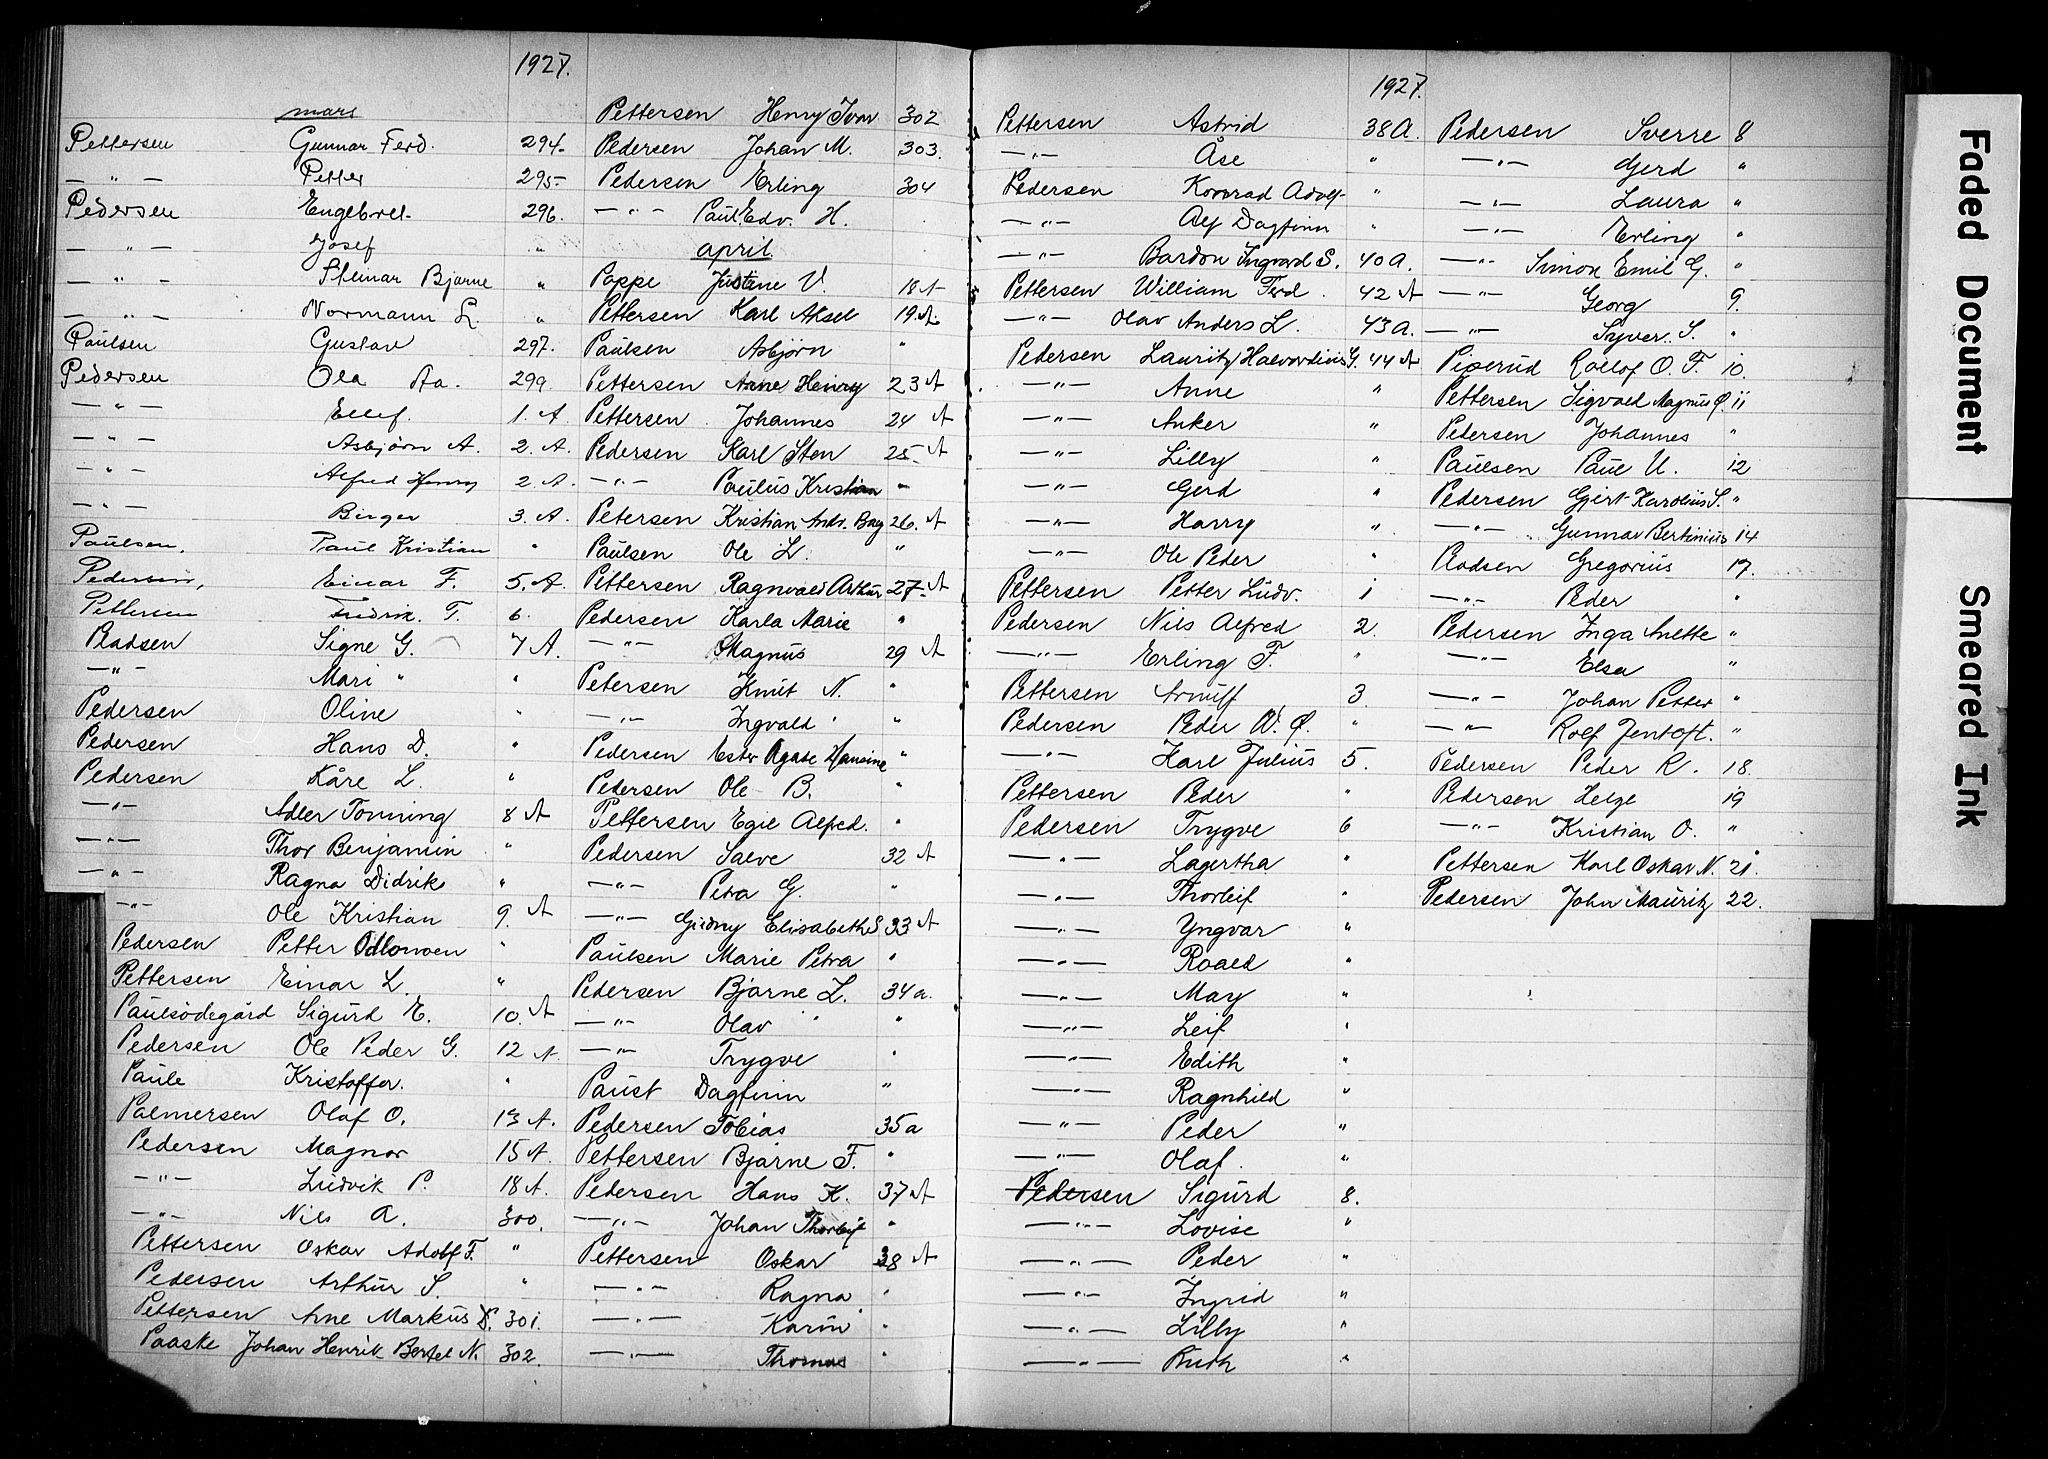 1927.
mars
Pettersen Gunnar Ferd. 294
— " — Petter 295
Pedersen Engebret 296.
— " — Josef "
— " — Steinar Bjarne "
— " — Normann L. "
Paulsen Gustav 297.
Pedersen Ola Aa. 299
— " — Ellef. 1. A
— " — Asbjörn A. 2. A.
— " — Alfred Henry 2. A.
— " — Birger 3. A.
Paulsen, Paul Kristian "
Pedersen, Einar F. 5. A.
Pettersen Fredrik. T. 6.
Pladsen Signe G. 7 A.
— " — Mari " "
Pedersen Oline "
Pedersen Hans D. "
Pedersen Kåre L. "
— " — Adler Tonning 8 A
— " — Thor Benjamin "
— " — Ragna Didrik "
— " — Ole Kristian 9. A
Pedersen Petter "
Pettersen Einar L. "
Paulsödegård Sigurd E. 10. A
Pedersen Ole Peder G. 12 A.
Paule Kristoffer. "
Palmersen Olaf O. 13 A.
Pedersen Magnor 15 A.
— " — Ludvik P. 18 A.
— " — Nils A. 300.
Pettersen Oskar Adolf F. "
Pedersen Arthur S. "
Pettersen Arne Markus 301.
Paaske Johan Henrik Bertel N. 302.
Pettersen Henry Ivar 302
Pedersen Johan M. 303.
Pedersen Erling 304
— " — Paul Edv. H.
april
Poppe Justine V. 18 A
Pettersen Karl Aksel 19 A.
Paulsen Asbjörn "
Pettersen Arne Henry 23 A
Pettersen Johannes 24 A
Pedersen Karl Sten 25 A
— " — Paulus Kristian "
Petersen Kristian Andr. Bay 26. A
Paulsen Ole L. "
Pettersen Ragnvald Arthur 27 A
Pedersen Karla Marie "
— " — Magnus 29 A
Petersen Knut N. "
— " — Ingvald "
Pedersen Ester Agate Hansine "
Pedersen Ole B. "
Pettersen Egil Alfred. "
Pedersen Salve 32 A
— " — Petra G. "
— " — Gudny Elisabeth S 33 A
Paulsen Marie Petra "
Pedersen Bjarne L. 34 a.
— " — Olav " "
— " — Trygve "
Paust Dagfinn "
Pedersen Tobias 35 a
Pettersen Bjarne F. "
Pedersen Hans K. 37 A
— " — Johan Thorleif "
Pettersen Oskar 38 A
— " — Ragna "
— " — Karin "
— " — Thomas "
1927.
Pettersen Astrid 38 A.
— " — Åse "
Pedersen Konrad Adolf "
— " — Alf Dagfinn "
— " — Bardon Ingvard S. 40 A.
Pettersen William Ferd. 42 A
— " — Olav Anders L. 43 A.
Pedersen Lauritz Halvordius G. 44 A
— " — Anne "
— " — Anker "
— " — Lilly "
— " — Gerd "
— " — Harry "
— " — Ole Peder "
Pettersen Petter Ludv. 1
Pedersen Nils Alfred 2.
— " — Erling F. "
Pettersen Arnulf 3
Pedersen Peder W. Ø. "
— " — Karl Julius 5.
Pettersen Peder "
Pedersen Trygve 6
— " — Lagertha "
— " — Thorleif "
— " — Yngvar "
— " — Roald "
— " — May "
— " — Leif "
— " — Edith "
— " — Ragnhild "
— " — Peder "
— " — Olaf. "
Pedersen Sigurd 8.
— " — Lovise "
— " — Peder "
— " — Ingrid "
— " — Lilly "
— " — Ruth "
Pedersen Sverre 8
— " — Gerd "
— " — Laura "
— " — Erling "
— " — Simon Emil G. "
— " — Georg 9.
— " — Syver. S. "
Piperud Rollof O. F. 10.
Pettersen Sigvald Magnus Ø. 11
Pedersen Johannes "
Paulsen Paul U. 12
Pedersen Gjert Karolius S. "
— " — Gunnar Bertinius 14
Pladsen Gregorius 17.
— " — Peder "
Pedersen Inga Anette "
— " — Elsa "
— " — Johan Petter "
— " — Rolf Jentoft. "
Pedersen Peder R. 18.
Pedersen Helge 19
— " — Kristian O. "
Pettersen Karl Oskar N. 21.
Pedersen John Mauritz 22.
Faded Document
Smeared Ink